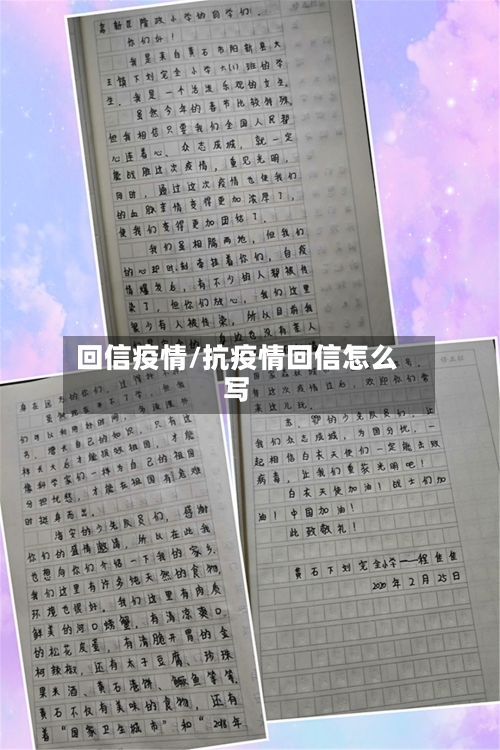 你们好！
我是来自黄石市阳新县大
王镇下刘完全小学六(1)班的学
生，我是一个活泼乐观的女生。
虽然今年的春节比较特殊，
但我相信只要我们全国人民都
心连着心、众志成城，就一定
能战胜这次疫情，重见光明，
同时，通过这次疫情也使我们
的血脉亲情变得更加浓厚了，
使我们变得更加团结了。
我们虽相隔两地，但我们
的心却时刻牵挂着你们，自疫
情爆发后，有不少的人都被传
染了，但你们放心，我们这里
很少有人被传染，所以目前我
回信疫情/抗疫情回信怎么
写
身在远方的你们，
书，增长自己的知识，只有这
样长大后才能报效祖国，才能
像科学家们一样为自己的祖国
分担忧愁，才能在祖国有危难
时挺身而出。
海安的少先队员们，感谢
你们的盛情邀请，所以在此我
也想向你们介绍一下我的家乡，
我们这里有许多纯天然的食物，
环境也很好。我们这里有肉质
鲜美的河口螃蟹，有清凉爽口
的松花皮蛋，有清脆开胃的金
柯辣椒，还有太子豆腐、珍珠
果米酒、黄石港饼、鳜鱼等等，
黄石不仅有美味的食物，还有
着“国家卫生城市”和“
有这次疫情过后，欢迎你们常
来这儿玩。
的少先队员们，让
我们众志成城，为国分忧，一
起相信白衣天使们一定能击败
病毒，让我们重获光明吧！
白衣天使加油！战士们加
油！中国加油！
此致敬礼！
黄石下刘完全小学——程佳佳
2020年2月25日